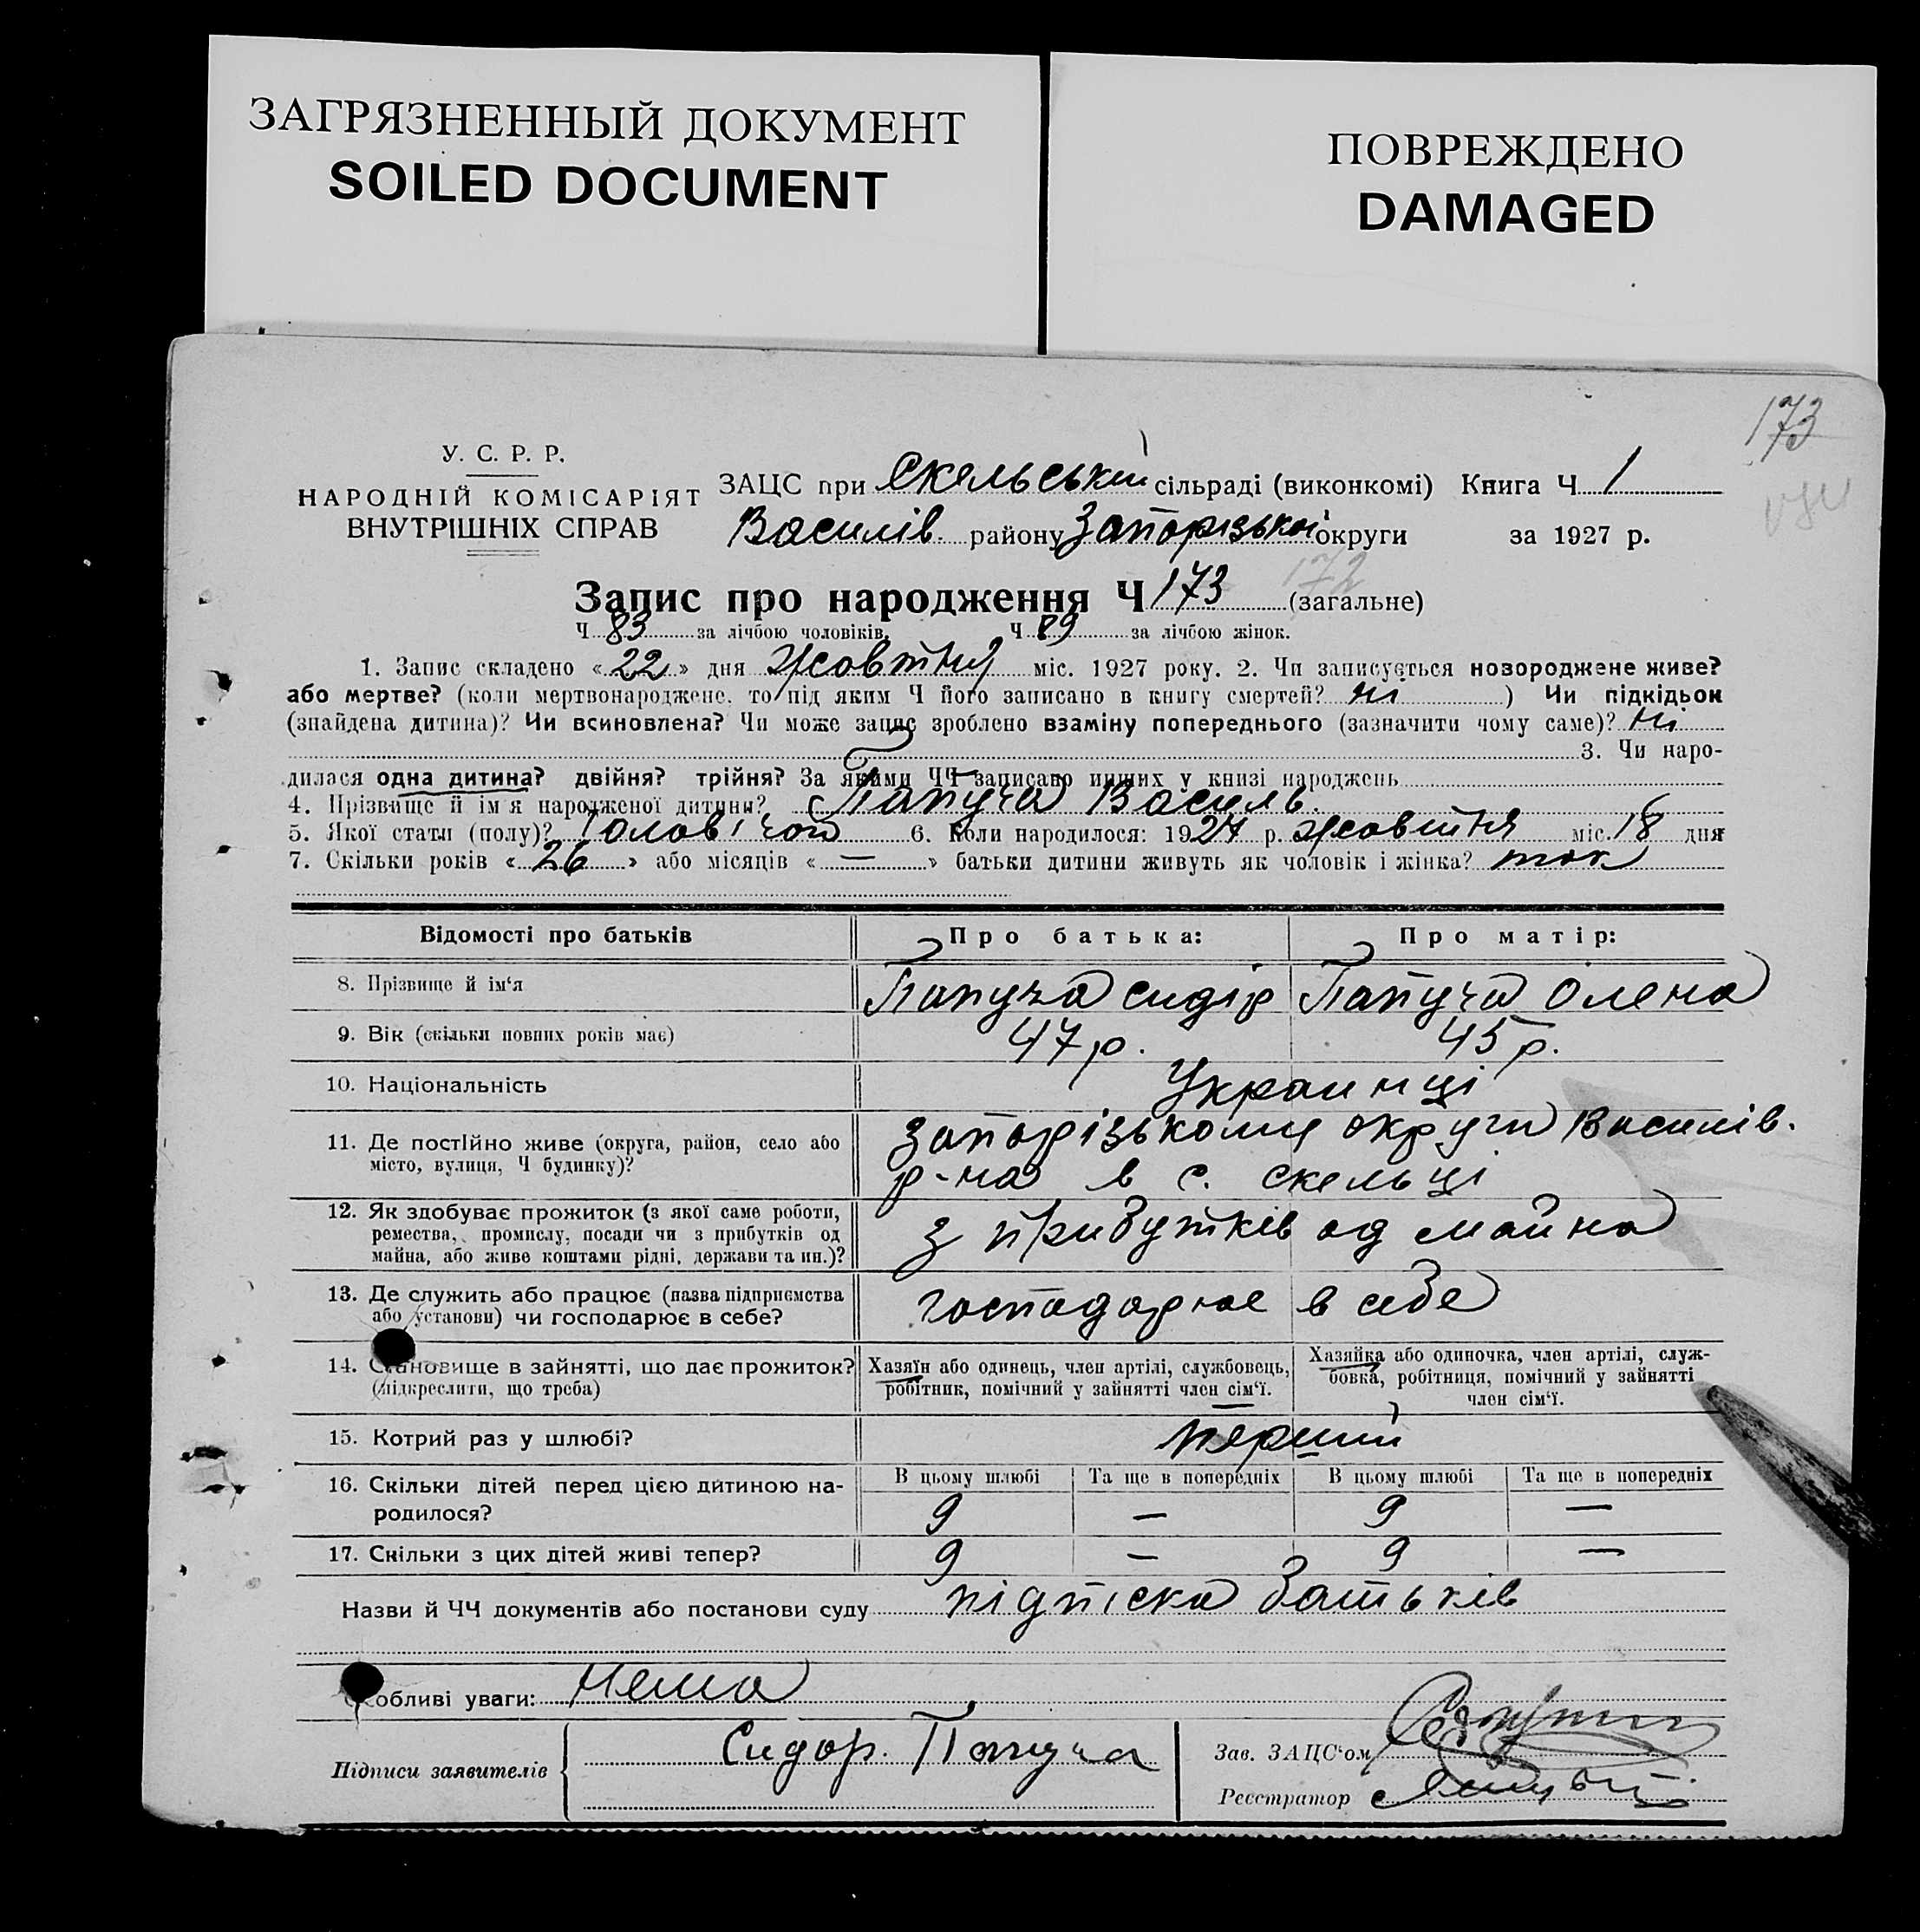 ЗАГРЯЗНЕННЫЙ ДОКУМЕНТ
SOILED DOCUMENT
ПОВРЕЖДЕНО
DAMAGED
173
У. С. Р. Р.
НАРОДНІЙ КОМІСАРІЯТ
ВНУТРІШНІХ СПРАВ
ЗАЦС при Скельській сільраді (виконкомі) Книга Ч 1
Василів. району Запорізької округи за 1927 р.
172
Запис про народження Ч 173 (загальне)
Ч 83 за лічбою чоловіків. Ч 89 за лічбою жінок.
1. Запис складено «22» дня жовтня міс. 1927 року. 2. Чи записується новороджене живе?
або мертве? (коли мертвонароджене, то під яким Ч його записано в книгу смертей? ні ) Чи підкідьок
(знайдена дитина)? Чи всиновлена? Чи може запис зроблено взаміну попереднього (зазначити чому саме)? ні
3. Чи наро-
дилася одна дитина? двійня? трійня? За якими ЧЧ записано инших у книзі народжень
4. Прізвище й ім'я народженої дитини? Папуча Василь.
5. Якої стати (полу)? Чоловічої 6. Коли народилося: 1927 р. жовтня міс. 18 дня
7. Скільки років «26» або місяців «—» батьки дитини живуть як чоловік і жінка? так
Відомості про батьків Про батька: Про матір:
8. Прізвище й ім‘я Папуча Сидір Папуча Олена
9. Вік (скільки повних років має) 47 р. 45 р.
10. Національність Украинці
11. Де постійно живе (округа, район, село або
місто, вулиця, Ч будинку)?
Запорізькому округи Василів.
р-на в с. Скельці
12. Як здобуває прожиток (з якої саме роботи,
ремества, промислу, посади чи з прибутків од
майна, або живе коштами рідні, держави та ин.)?
з прибутків од майна
13. Де служить або працює (назва підприємства
або установи) чи господарює в себе?
господарює в себе
14. Становище в зайнятті, що дає прожиток?
(підкреслити, що треба)
Хазяїн або одинець, член артілі, службовець,
робітник, помічний у зайнятті член сім‘ї.
Хазяйка або одиночка, член артілі, служ-
бовка, робітниця, помічний у зайнятті
член сім‘ї.
15. Котрий раз у шлюбі? перший
16. Скільки дітей перед цією дитиною на-
родилося?
В цьому шлюбі Та ще в попередніх В цьому шлюбі Та ще в попередніх
9 — 9 —
17. Скільки з цих дітей живі тепер? 9 — 9 —
Назви й ЧЧ документів або постанови суду підпіска батьків
Особливі уваги: Нема
Підписи заявителів Сидор. Папуча
Зав. ЗАЦС‘ом
Реєстратор